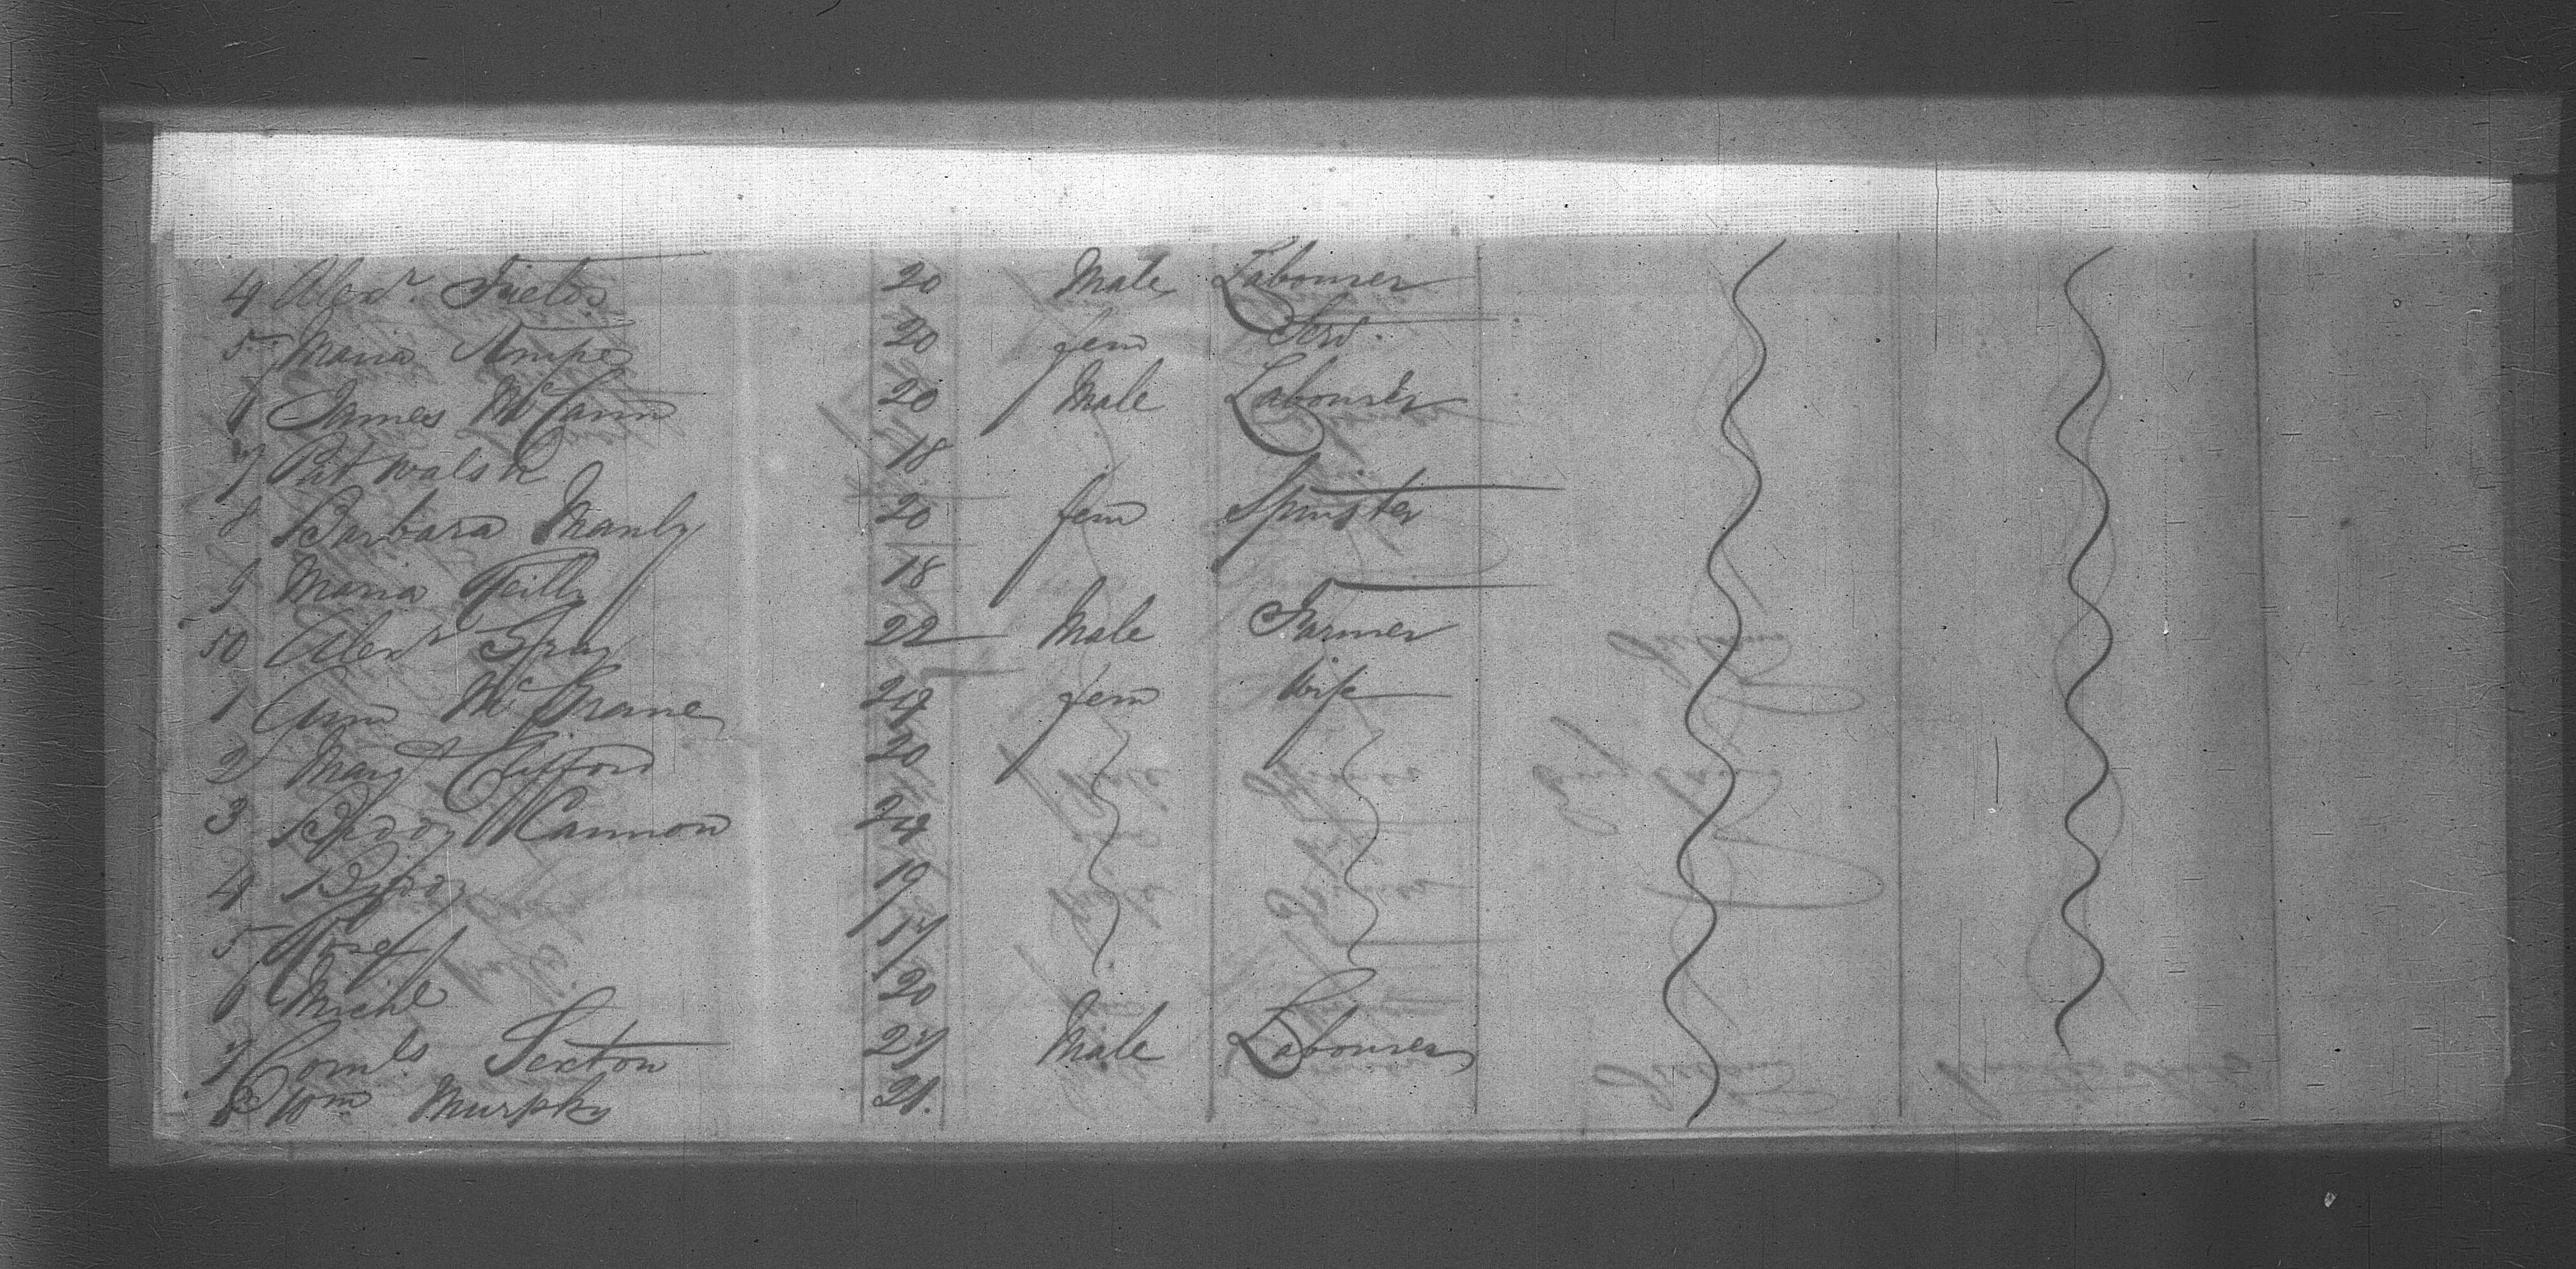 4 Alexr. Fields 20 Male Labourer
5 Maria Knipe 20 fem Serv.
6 James McCann 20 Male Labourer
7 Pat Walsh 18
8 Barbara Manly 20 fem Spinster
9 Maria Reilly 18
50 Alexr Gray 22 Male Farmer
1 Ann McGrane 24 fem Wife
2 Mary Clifford 20
3 Biddy Cannon 24
4 Biddy 19
5 Rose 17
6 Michl 20
7 Cornls Sexton 27 Male Labourer
8 Wm Murphy 21.